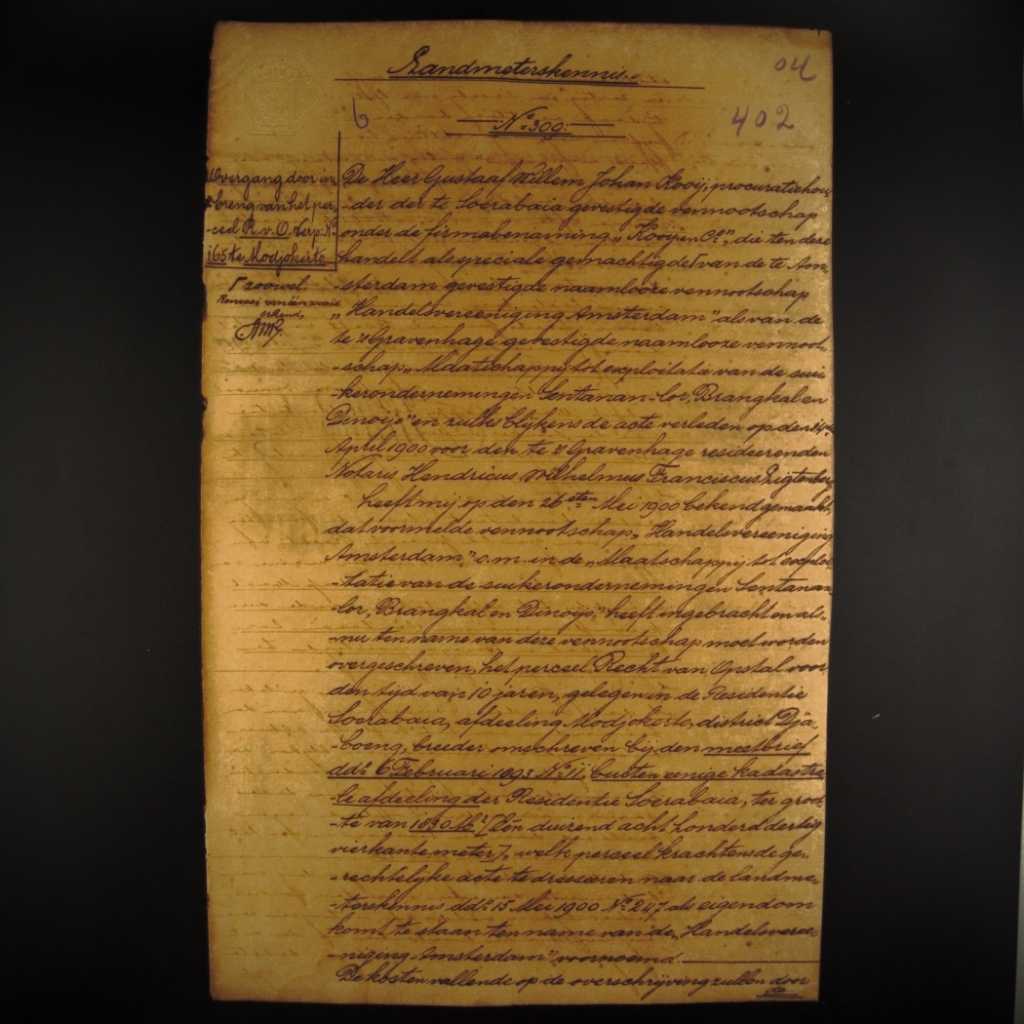 Landmeterskennis.
04
No 309.
6
402
Overgang door in
breng van het per
-ceel R.v.O. Verp. No
165 te Modjokerto
zoowel
De Heer Gustaaf Willem Johan Kooij, procuratiehou
-der der te Soerabaia gevestigde vennootschap
onder de firmabenaming „Kooij en Co", die ten deze
handelt als speciale gemachtigde van de te Am
-sterdam gevestigde naamlooze vennootschap
„Handelsvereeniging Amsterdam" als van de
te 's Gravenhage gevestigde naamlooze vennoot-
-schap „Maatschappij tot exploitatie van de sui
-kerondernemingen Sentanan-lor, Brangkal en
Dinoijo" en zulks blijkens de acte verleden op den
April 1900 voor den te 's Gravenhage resideerenden
Notaris Hendricus Wilhelmus Franciscus
heeft mij op den 26sten Mei 1900 bekend gemaakt,
dat voormelde vennootschap „Handelsvereeniging
Amsterdam," o.m. in de „Maatschappij tot exploi
-tatie van de suikerondernemingen Sentanan
-lor, Brangkal en Dinoijo," heeft ingebracht en als-
-nu ten name van deze vennootschap moet worden
overgeschreven, het perceel Recht van Opstal voor
den tijd van 10 jaren, gelegen in de Residentie
Soerabaia, afdeeling Modjokerto, district Dja-
-boeng, breeder omschreven bij den meetbrief
ddo 6 Februari 1893 No 11, buiten eenige kadastra
-le afdeeling der Residentie Soerabaia, ter groot
-te van 1830 M2 / Eén duizend acht honderd dertig
vierkante meter /, welk perceel krachtens de ge-
-rechtelijke acte te dresseeren naar de landme-
-terskennis ddo 15 Mei 1900 No 247 als eigendom
komt te staan ten name van de „Handelsveree-
-niging Amsterdam" voornoemd.
De kosten vallende op de overschrijving zullen door